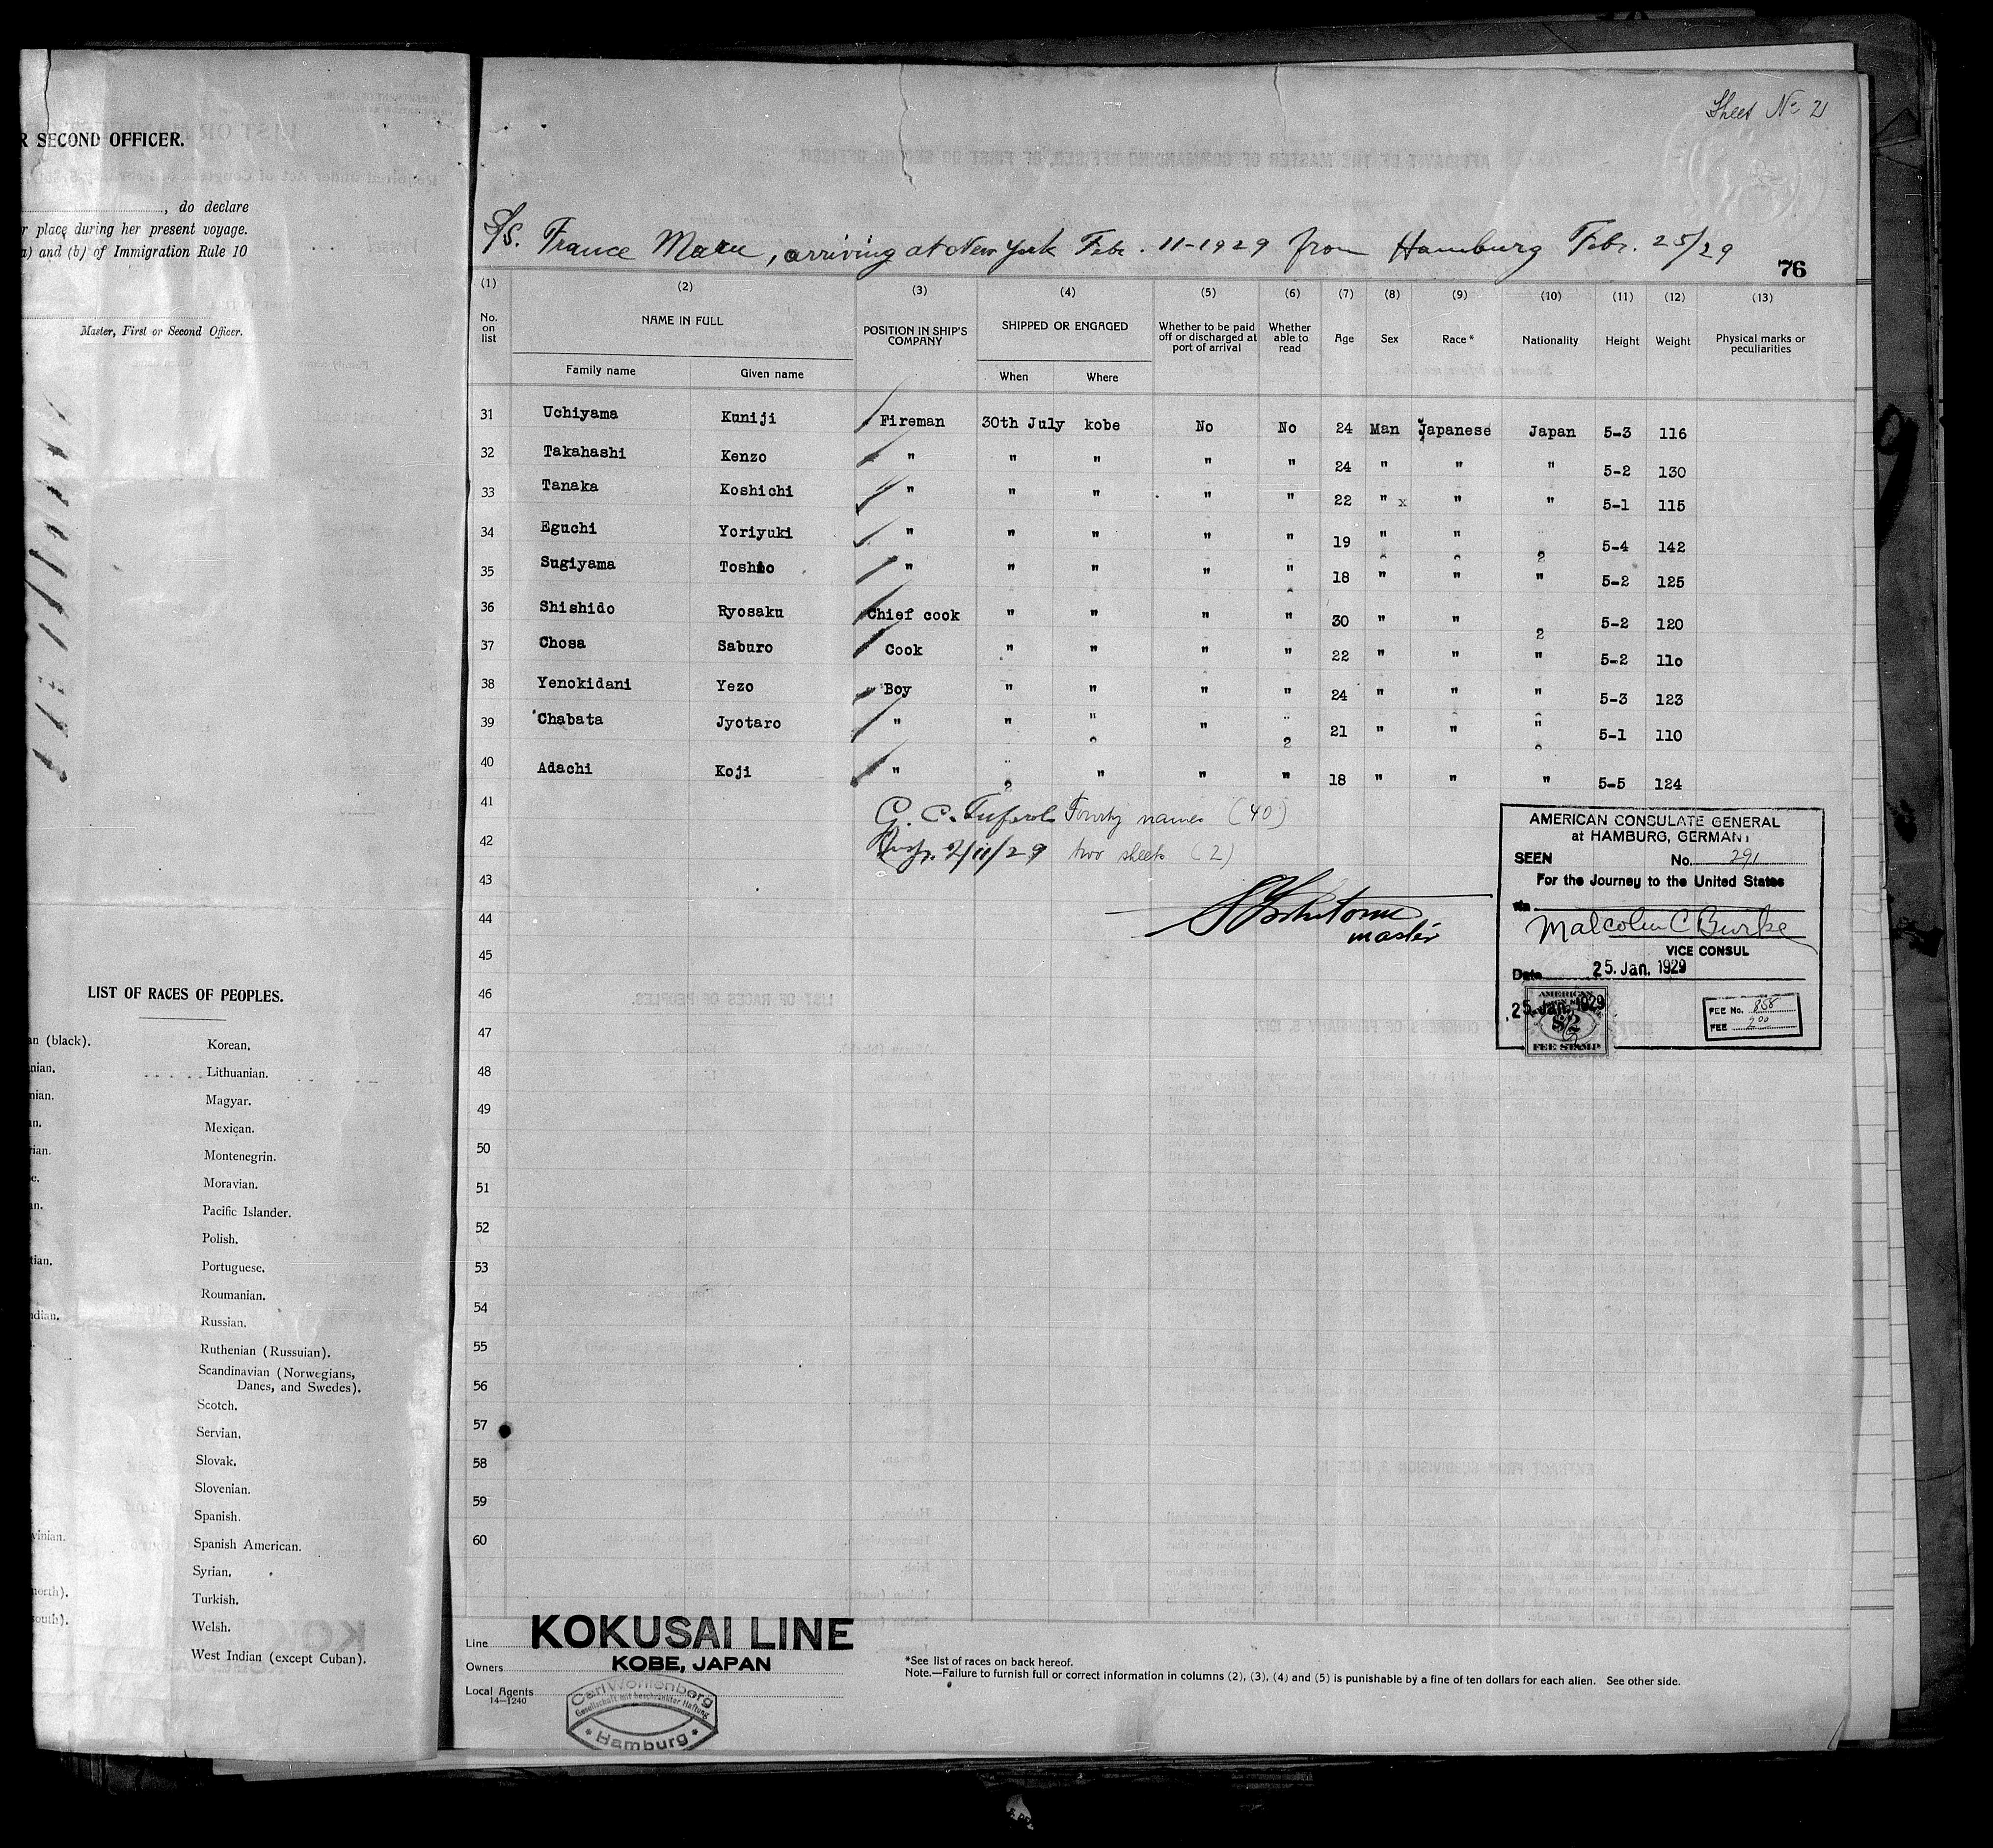 R SECOND OFFICER.
, do declare
r place during her present voyage.
a) and (b) of Immigration Rule 10
Master, First or Second Officer.
LIST OF RACES OF PEOPLES.
an (black). Korean.
nian. Lithuanian.
nian. Magyar.
an. Mexican.
rian. Montenegrin.
e. Moravian.
an. Pacific Islander.
Polish.
tian. Portuguese.
Roumanian.
ndian. Russian.
Ruthenian (Russuian).
Scandinavian (Norwegians,
Danes, and Swedes).
Scotch.
Servian.
Slovak.
Slovenian.
Spanish.
vinian. Spanish American.
Syrian.
north). Turkish.
south). Welsh.
West Indian (except Cuban).
Sheet No 2
S/S. France Maru, arriving at New York Febr. 11-1929 from Hamburg Febr. 25/29
76
(1) (2) (3) (4) (5) (6) (7) (8) (9) (10) (11) (12) (13)
No. on list NAME IN FULL POSITION IN SHIP'S COMPANY SHIPPED OR ENGAGED Whether to be paid off or discharged at port of arrival Whether able to read Age Sex Race* Nationality Height Weight Physical marks or peculiarities
Family name Given name When Where
31 Uchiyama Kuniji Fireman 30th July kobe No No 24 Man Japanese Japan 5-3 116
32 Takahashi Kenzo " " " " " 24 " " " 5-2 130
33 Tanaka Koshichi " " " " " 22 " x " " 5-1 115
34 Eguchi Yoriyuki " " " " " 19 " " " 5-4 142
35 Sugiyama Toshio " " " " " 18 " " " 5-2 125
36 Shishido Ryosaku Chief cook " " " " 30 " " " 5-2 120
37 Chosa Saburo Cook " " " " 22 " " " 5-2 11o
38 Yenokidani Yezo Boy " " " " 24 " " " 5-3 123
39 Chabata Jyotaro " " " " " 21 " " " 5-1 110
40 Adachi Koji " " " " " 18 " " " 5-5 124
41 G. C. Fourty names (40)
42 Insp. 2/11/29 two sheets (2)
43
44
master
45
46
47
48
49
50
51
52
53
54
55
56
57
58
59
60
AMERICAN CONSULATE GENERAL
at HAMBURG, GERMANY
SEEN No. 291
For the Journey to the United States
via
Malcolm C Burke
VICE CONSUL
Date 25. Jan. 1929
25. Jan. 1929
AMERICAN
$2
FEE STAMP
FEE No. 858
FEE 2.00
Line KOKUSAI LINE
Owners KOBE, JAPAN
Local Agents
14-1240
Carl Wohlenberg
Gesellschaft mit beschränkter Haftung
* Hamburg *
*See list of races on back hereof.
Note.—Failure to furnish full or correct information in columns (2), (3), (4) and (5) is punishable by a fine of ten dollars for each alien. See other side.